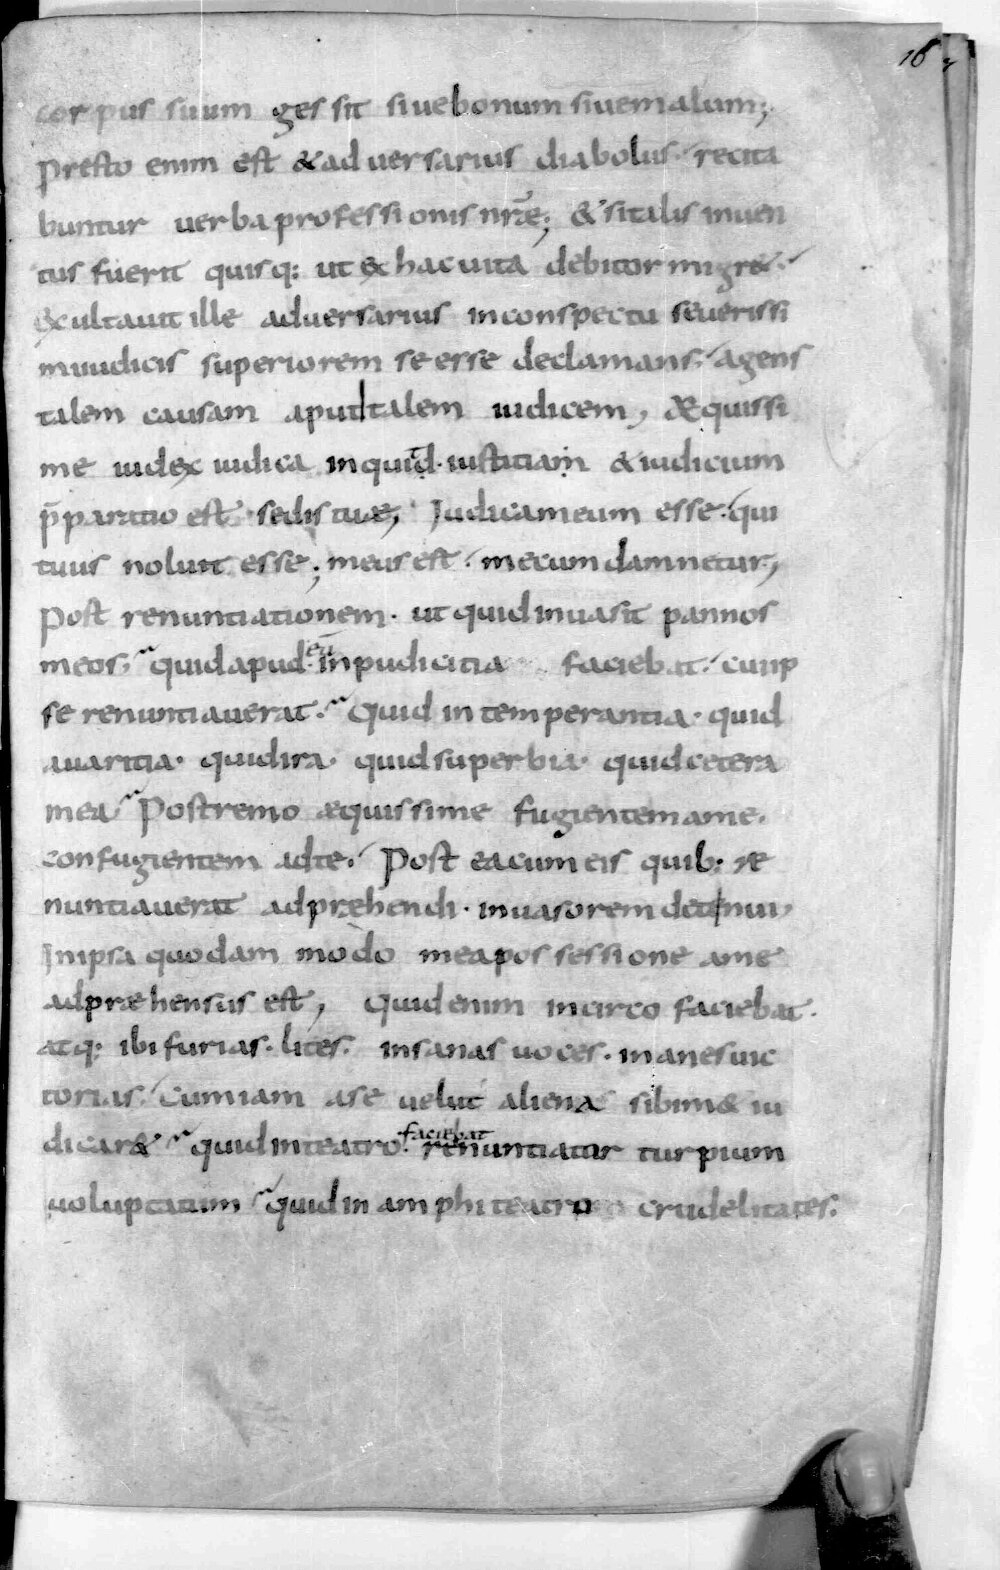 16
corpus suum gessit siuebonum siuemalum;
presto enim est &aduersarius diabolus. recita
buntur uerba professionis nr̄ę; &sitalis inuen
tus fuerit quisq: ut exhacuita debitor migr&.
exultauit ille aduersarius inconspectu seuerissi
miiudicis superiorem se esse declamans. agens
talem causam aputtalem iudicem, Aequissi
me iudex iudica inquid. iustitiam &iudicium
p̄paratio est sedis tuae, Iudicameum esse. qui
tuus noluit esse; meus est. mecum damnetur,
post renuntiationem. ut quid inuasit pannos
meos, quid apud eū inpudicitia faciebat. cui ip
se renuntiauerat. Quid intemperantia. quid
auaritia. quid ira. quid superbia. quid cetera
mea Postremo aequissime fugientem ame.
confugientem adte. Post ea cum eis quib: re
nuntiauerat adpraehendi. inuasorem detinui,
Inipsa quodam modo mea possessione ame
adpraehensus est, Quid enim incirco faciebat.
atq: ibi furias. lites. insanas uoces. inanes uic
torias. Cumiam ase uelut aliena sibim& iu
dicar& quid inteatro. faciebat renuntiatur turpium
uoluptatum quid in amphiteatro crudelitates.